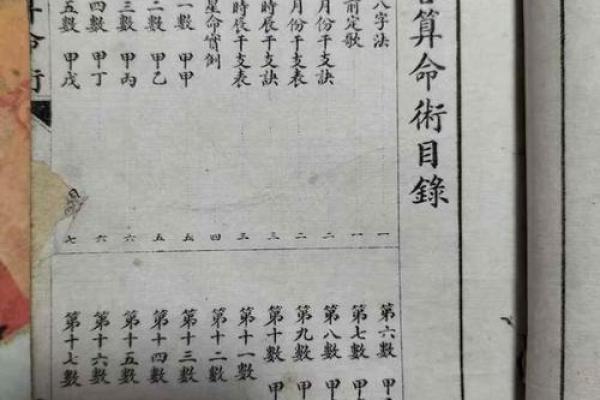 算命術目錄
八字法 一
前定歌 一
月份干支訣 二
月份干支表 二
時辰干支訣 三
時辰干支表 三
星命實例 四
一數 甲甲 五
二數 甲乙 五
三數 甲丙 六
四數 甲丁 六
五數 甲戊 七
第六數 甲
第七數 甲
第八數 甲
第九數 甲
第十數 甲
第十一數
第十二數
第十三數
第十四數
第十五數
第十六數
第十七數
命術